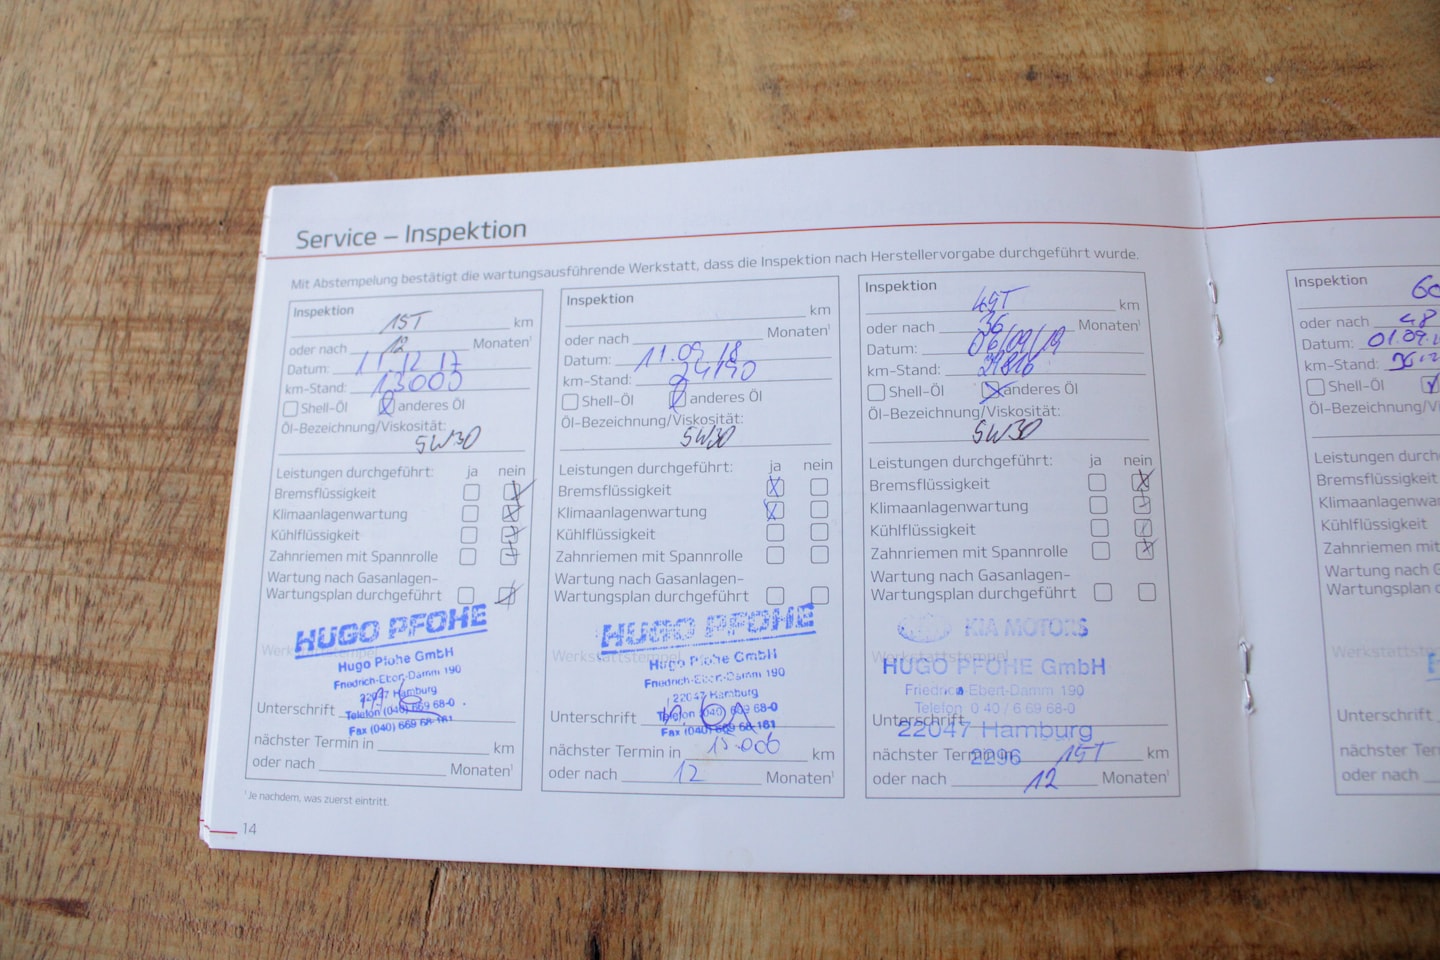 Service – Inspektion
Mit Abstempelung bestätigt die wartungsausführende Werkstatt, dass die Inspektion nach Herstellervorgabe durchgeführt wurde.
Inspektion
15T km
oder nach 12 Monaten¹
Datum: 11.12.17
km-Stand: 13000
Shell-Öl anderes Öl
Öl-Bezeichnung/Viskosität:
5W30
Leistungen durchgeführt: ja nein
Bremsflüssigkeit
Klimaanlagenwartung
Kühlflüssigkeit
Zahnriemen mit Spannrolle
Wartung nach Gasanlagen-
Wartungsplan durchgeführt
HUGO PFOHE
Hugo Pfohe GmbH
Friedrich-Ebert-Damm 190
22047 Hamburg
Telefon (040) 669 68-0
Fax (040) 669 68-161
Unterschrift
nächster Termin in km
oder nach Monaten¹
¹Je nachdem, was zuerst eintritt.
14
Inspektion
km
oder nach Monaten¹
Datum: 11.09.18
km-Stand: 24190
Shell-Öl anderes Öl
Öl-Bezeichnung/Viskosität:
5W30
Leistungen durchgeführt: ja nein
Bremsflüssigkeit
Klimaanlagenwartung
Kühlflüssigkeit
Zahnriemen mit Spannrolle
Wartung nach Gasanlagen-
Wartungsplan durchgeführt
HUGO PFOHE
Werkstattstempel
Hugo Pfohe GmbH
Friedrich-Ebert-Damm 190
22047 Hamburg
Telefon (040) 669 68-0
Fax (040) 669 68-161
Unterschrift
nächster Termin in 15.000 km
oder nach 12 Monaten¹
Inspektion
km
oder nach 36 Monaten¹
Datum: 06/09/19
km-Stand:
Shell-Öl anderes Öl
Öl-Bezeichnung/Viskosität:
5W30
Leistungen durchgeführt: ja nein
Bremsflüssigkeit
Klimaanlagenwartung
Kühlflüssigkeit
Zahnriemen mit Spannrolle
Wartung nach Gasanlagen-
Wartungsplan durchgeführt
KIA MOTORS
Werkstattstempel
HUGO PFOHE GmbH
Friedrich Ebert-Damm 190
Telefon: 0 40 / 6 69 68-0
Unterschrift
22047 Hamburg
2296
nächster Termin in 15T km
oder nach 12 Monaten¹
Inspektion 60
oder nach 48
Datum: 01.09.
km-Stand:
Shell-Öl
Öl-Bezeichnung/Vis
Leistungen durchge
Bremsflüssigkeit
Klimaanlagenwar
Kühlflüssigkeit
Zahnriemen mit
Wartung nach G
Wartungsplan d
Werkstattste
Unterschrift
nächster Ter
oder nach